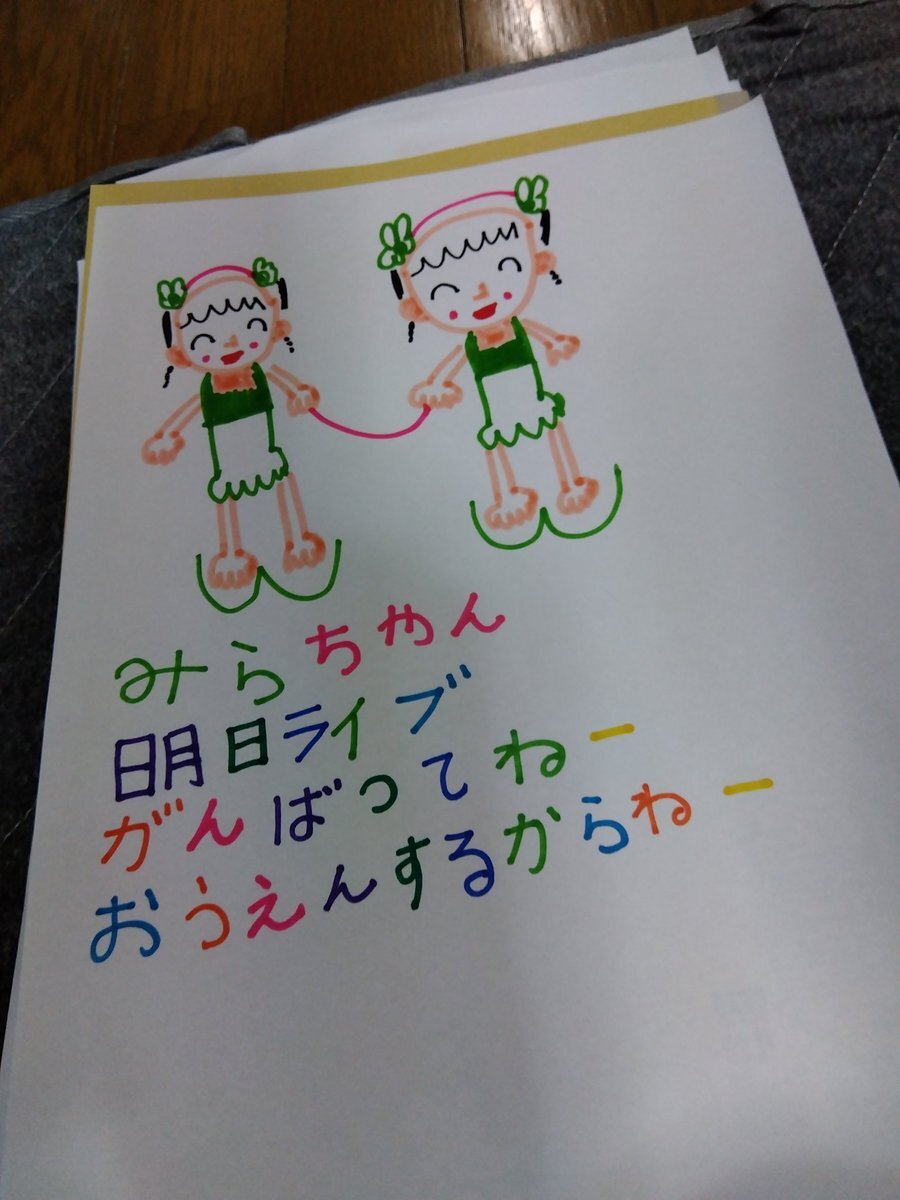 みらちゃん
明日ライブ
がんばってねー
おうえんするからねー